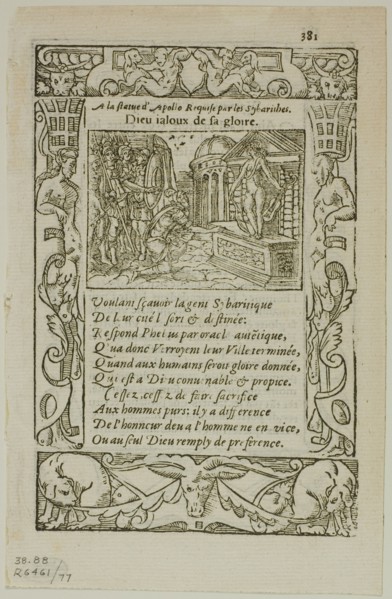 381
A la statue d'Apollo Requise par les Sybarithes.
Dieu ialoux de sa gloire.
Voulant sçauoir la gent Sybaritique
De leur cité l sort & destinée:
Respond Phebus par oracl autétique,
Qu'ua donc Verroyent leur Ville terminée,
Quand aux humains seroit gloire donnée,
Qui est a Dieu conuenable & propice.
Cessez, cessez de faire sacrifice
Aux hommes purs: il y a difference
De l'honneur deu a l'homme ne en vice,
Ou au seul Dieu remply de preference.
38.88
R6461/77